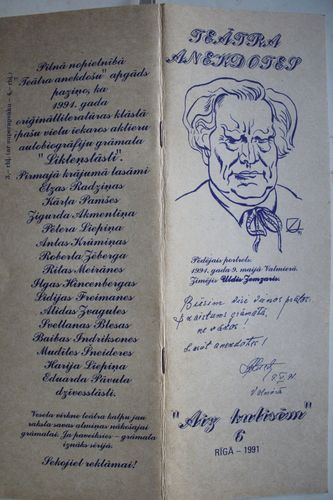 3.- rbļ. (ar superapvāku - 6,- rbļ.)
Pilnā nopietnībā
"Teātra anekdošu" apgāds
paziņo, ka
1991. gada
oriģinālliteratūras klāstā
īpašu vietu iekaros aktieru
autobiogrāfiju grāmata
"Likteņstāsti".
Pirmajā krājumā lasāmi
Elzas Radziņas
Kārļa Pamšes
Zigurda Akmentiņa
Pētera Liepiņa
Antas Krūmiņas
Roberta Zēberga
Ritas Meirānes
Ilgas Hincenbergas
Lidijas Freimanes
Alīdas Zvagules
Svetlanas Blesas
Baibas Indriksones
Mudītes Šneideres
Harija Liepiņa
Eduarda Pāvula
dzīvesstāsti.
Vesela virkne teātra kalpu jau
raksta savas atmiņas nākošajai
grāmatai. Ja paveiksies - grāmata
iznāks sērijā.
Sekojiet reklāmai!
TEĀTRA
ANEKDOTES
Pēdējais portrets
1991. gada 9. maijā Valmierā.
Zīmējis Uldis Zemzaris
Būsim visi vaņos prātos
Skaistums grāmatā,
ne vāros!
Lasāt anekdotes!
Valmierā
"Aiz kulisēm"
6
RĪGĀ - 1991